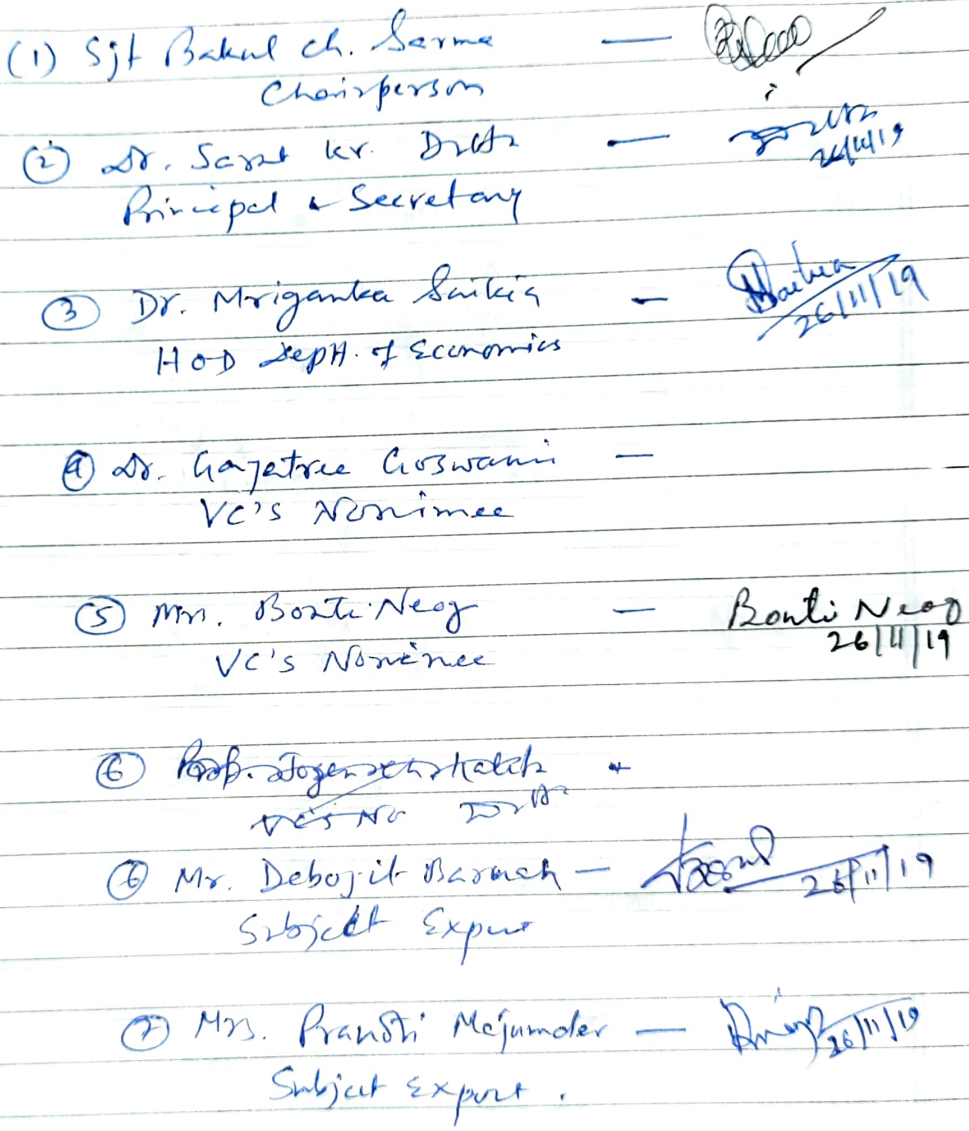 (1) Sjt Bakul ch. Sarma —
Chairperson
(2) Dr. Sarat Kr. Dutta —
26/11/19
Principal & Secretary
(3) Dr. Mriganka Saikia — MSaikia
26/11/19
HOD Deptt. of Economics
(4) Dr. Gayatree Goswami —
VC's Nominee
(5) Mrs. Bonti Neog — Bonti Neog
26/11/19
VC's Nominee
(6) Prof. Jogen
VC's No
(6) Mr. Debojit Baruah — 26/11/19
Subject Expert
(7) Mrs. Pranoti Majumder — 26/11/19
Subject Expert.